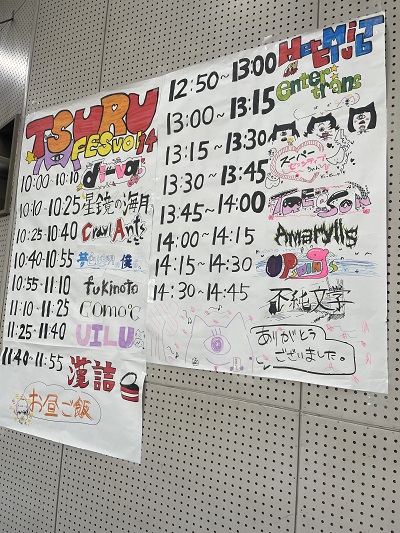 TSURU
FESvol.4
10:00~10:10 di-va
10:10~10:25 星鏡の海月
10:25~10:40 Crawl Ants
10:40~10:55
10:55~11:10 fukinoto
11:10~11:25 comoic
11:25~11:40 UILU
11:40~11:55 漢詰
お昼ご飯
12:50~13:00 Hermit Club
13:00~13:15 enter trans
13:15~13:30
13:30~13:45 スーパー
13:45~14:00
14:00~14:15 Amaryllis
14:15~14:30
14:30~14:45 不純文学
ありがとう
ございました。